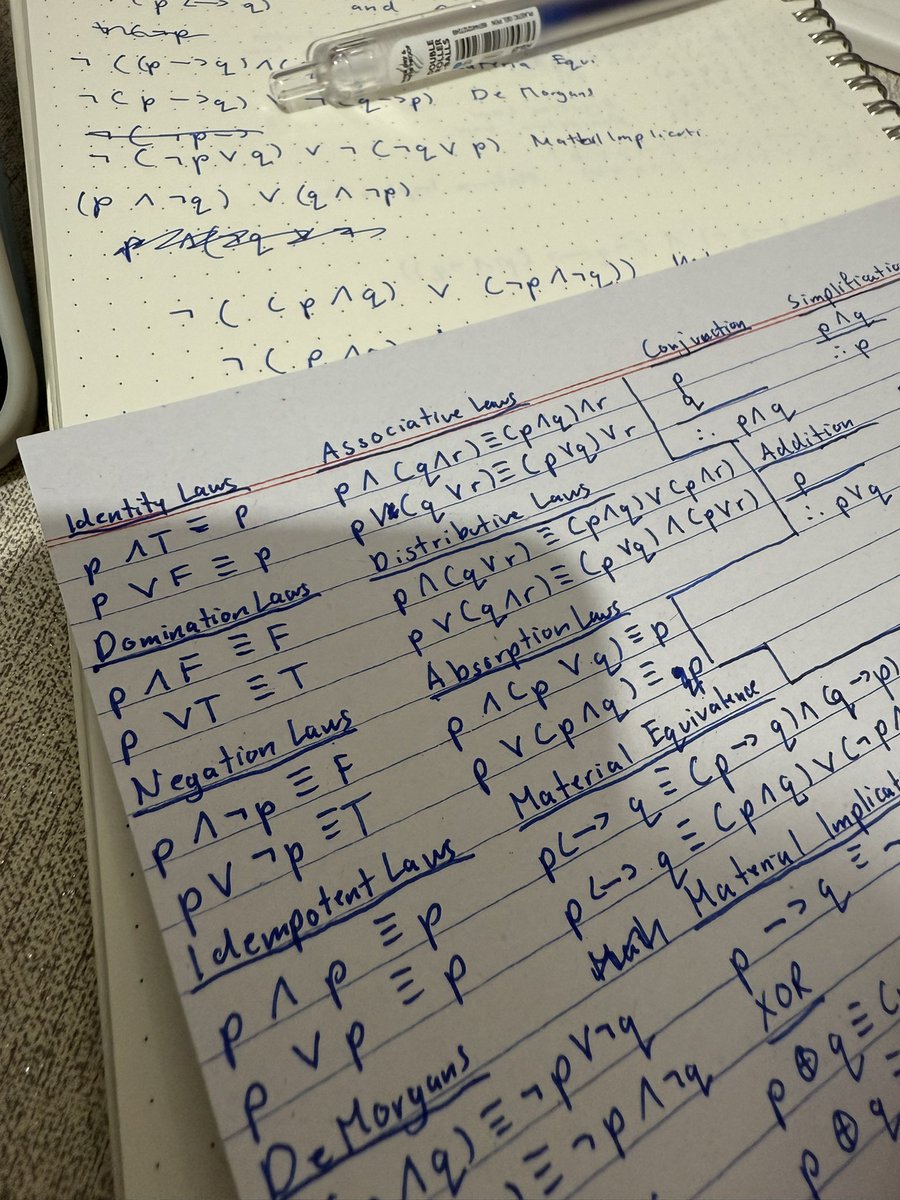 (p <-> q) and
¬ ((p -> q) ∧ ( Equi
¬ ( p -> q) ∨ ¬ (q -> p) De Morgans
¬ (¬p ∨ q) ∨ ¬ (¬q ∨ p)
(p ∧ ¬q) ∨ (q ∧ ¬p)
¬ ( (p ∧ q) ∨ (¬p ∧ ¬q))
¬ (p ∧
DOUBLE
ROLLER
BALLS
PLASTIC GEL PEN
Identity Laws
p ∧ T ≡ p
p ∨ F ≡ p
Domination Laws
p ∧ F ≡ F
p ∨ T ≡ T
Negation Laws
p ∧ ¬p ≡ F
p ∨ ¬p ≡ T
Idempotent Laws
p ∧ p ≡ p
p ∨ p ≡ p
DeMorgans
∧ q) ≡ ¬p ∨ ¬q
) ≡ ¬p ∧ ¬q
Associative Laws
p ∧ (q ∧ r) ≡ (p ∧ q) ∧ r
p ∨ (q ∨ r) ≡ (p ∨ q) ∨ r
Distributive Laws
p ∧ (q ∨ r) ≡ (p ∧ q) ∨ (p ∧ r)
p ∨ (q ∧ r) ≡ (p ∨ q) ∧ (p ∨ r)
Absorption Laws
p ∧ (p ∨ q) ≡ p
p ∨ (p ∧ q) ≡ p
Material Equivalence
p <-> q ≡ (p -> q) ∧ (q -> p)
p <-> q ≡ (p ∧ q) ∨ (¬p ∧
Material Implicat
p -> q ≡ ¬
XOR
p ⊕ q ≡ (
p ⊕ q ≡
Conjunction
p
q
∴ p ∧ q
Simplification
p ∧ q
∴ p
Addition
p
∴ p ∨ q